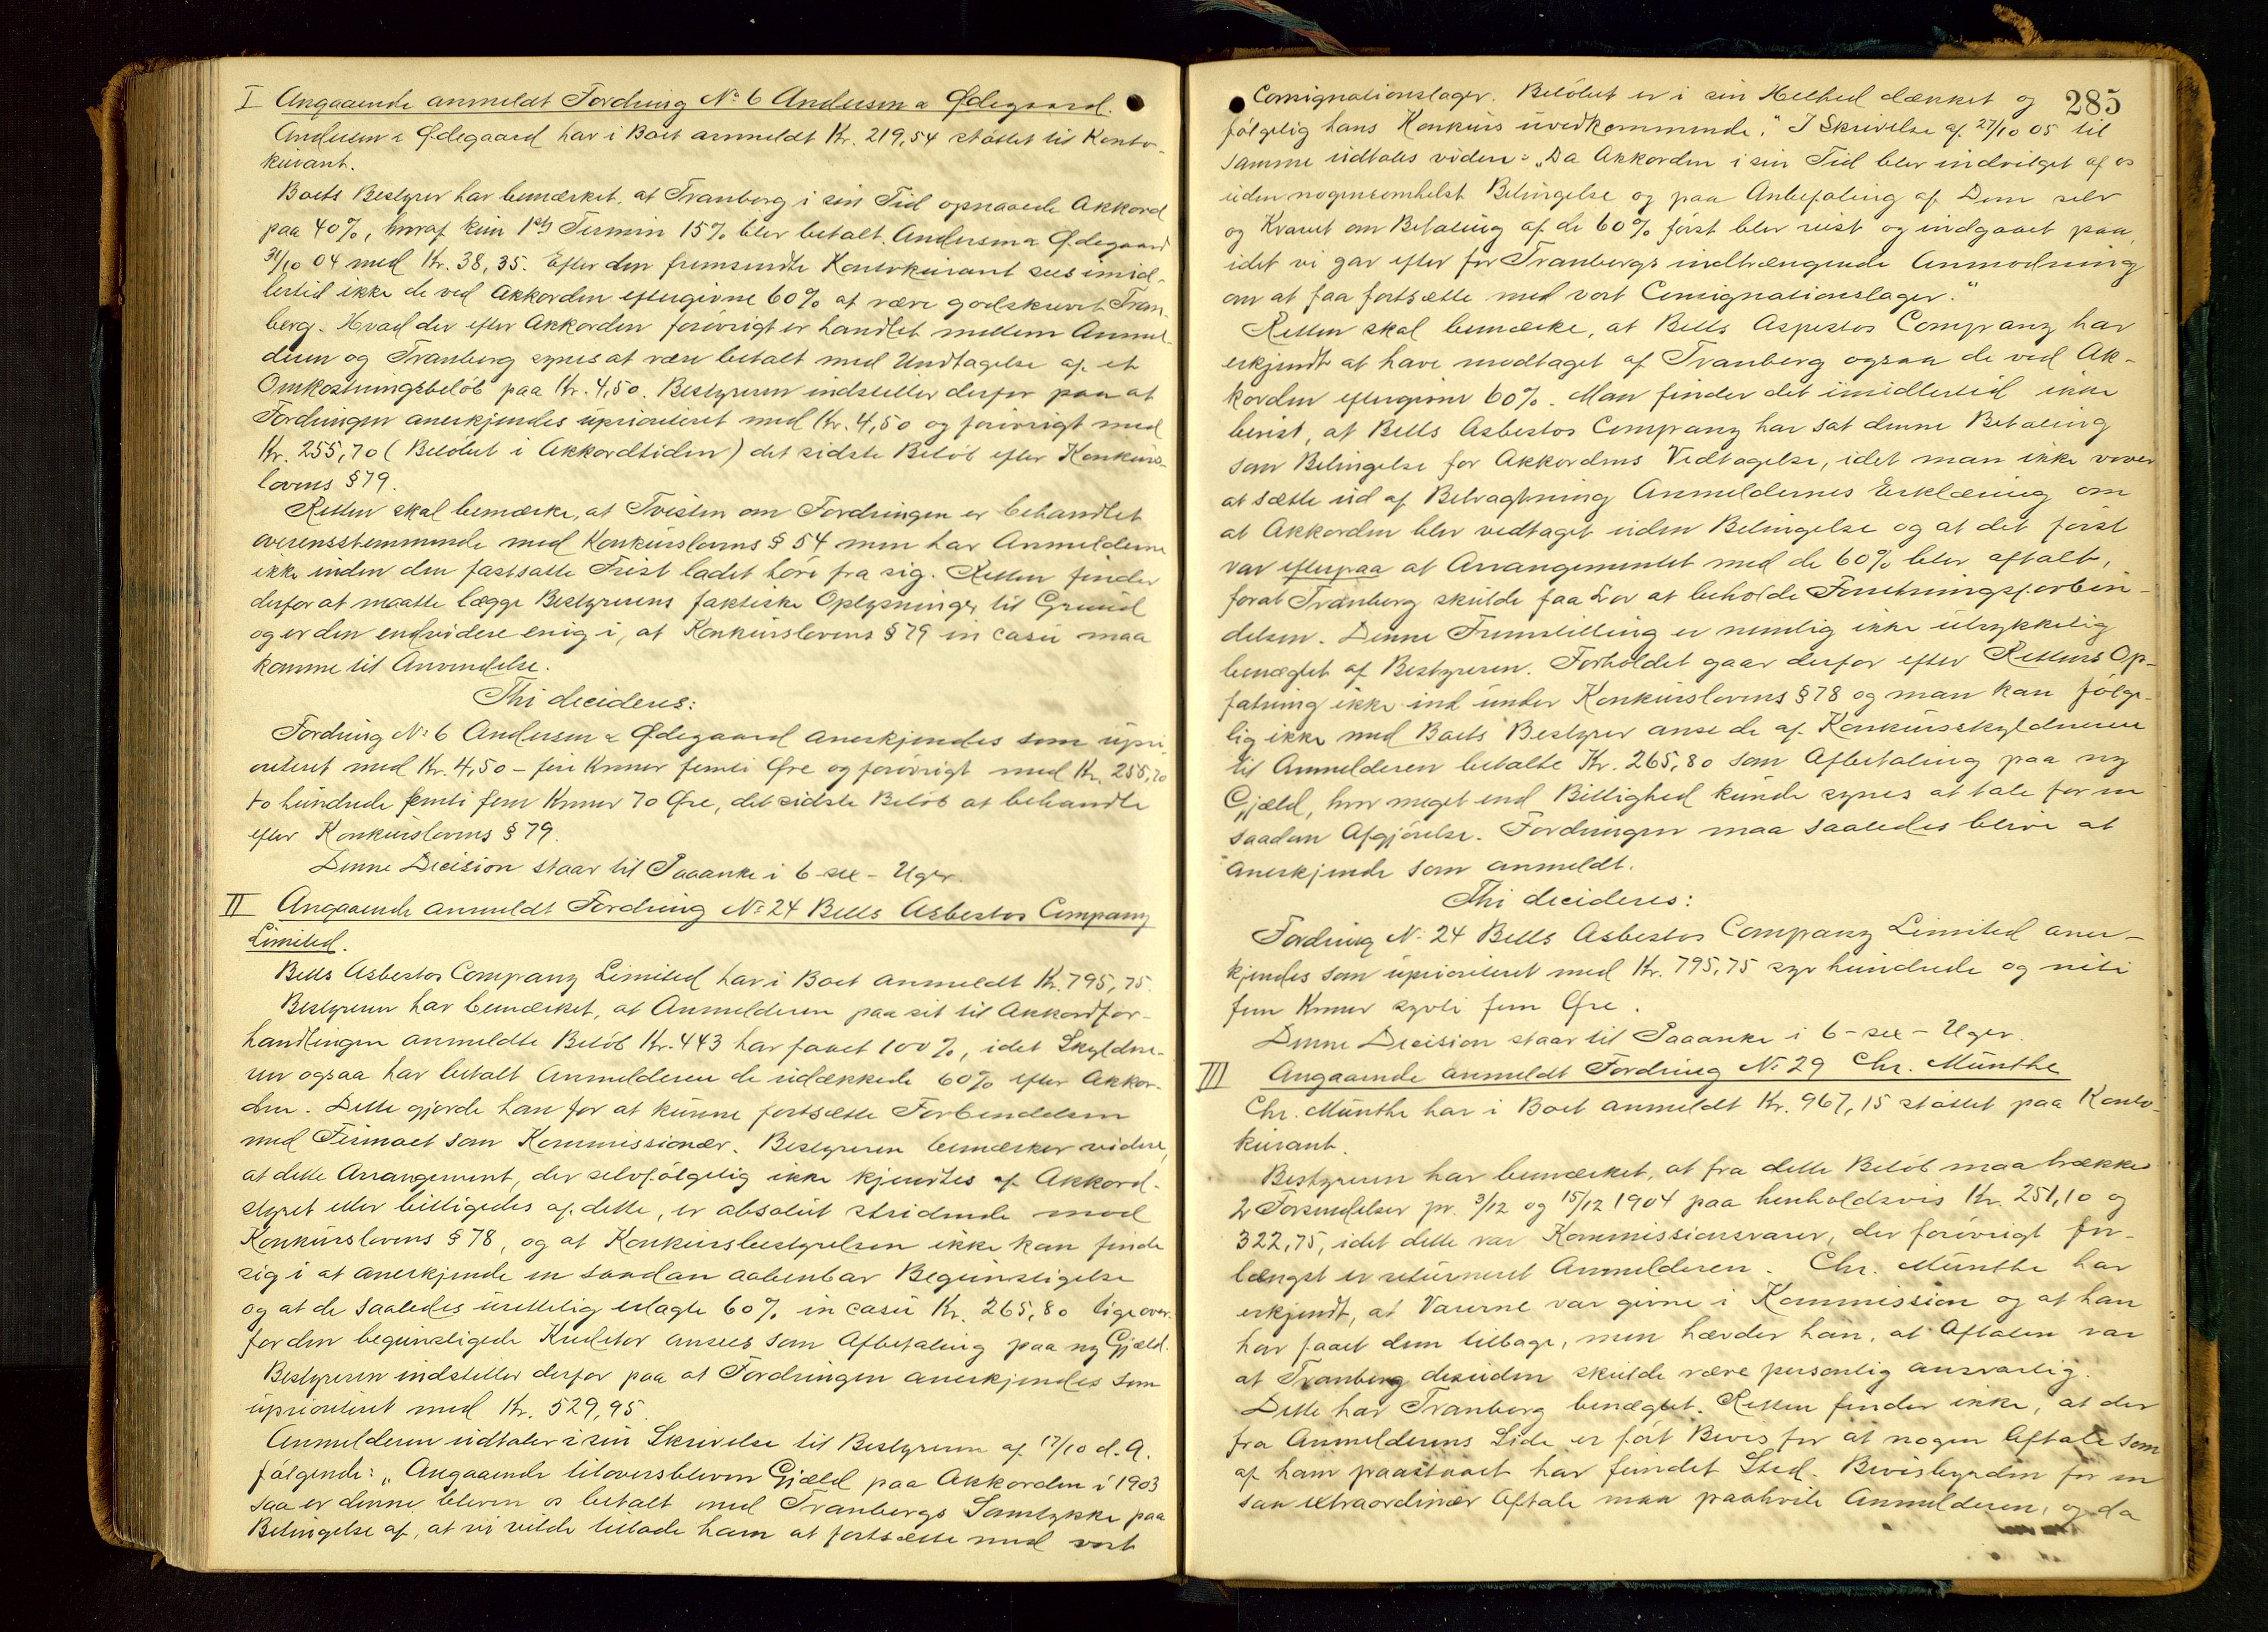 I Angaaende anmeldt Fordring No 6 Andersen & Ødegaard.
Andersen & Ødegaard har i Boet anmeldt Kr. 219,54 støttet til Konto-
kurant.
Boets Bestyrer har bemærket, at Tranberg i sin Tid opnaaede Akkord
paa 40%, hvoraf kun 1ste Termin 15% blev betalt Andersen & Ødegaard
31/10 04 med Kr. 38,35. Efter den fremsendte Kontokurant sees imid-
lertid ikke de ved Akkorden eftergivne 60% at være godskrevet Tran-
berg. Hvad der efter Akkorden forøvrigt er handlet mellem Anmel-
deren og Tranberg synes at være betalt med Undtagelse af et
Omkostningsbeløb paa Kr. 4,50. Bestyreren indstiller derfor paa at
Fordringen anerkjendes uprioriteret med Kr. 4,50 og forøvrigt med
Kr. 255,70 (Beløbet i Akkordtiden) det sidste Beløb efter Konkurs-
lovens § 79.
Retten skal bemærke, at Tvisten om Fordringen er behandlet
overensstemmende med Konkurslovens § 54 men har Anmelderne
ikke inden den fastsatte Frist ladet høre fra sig. Retten finder
derfor at maatte lægge Bestyrerens faktiske Oplysninger til Grund
og er den endvidere enig i, at Konkurslovens § 79 in casu maa
komme til Anvendelse.
Thi decideres:
Fordring No 6 Andersen & Ødegaard anerkjendes som upri-
oriteret med Kr. 4,50 – fire Kroner femti Øre og forøvrigt med Kr. 255,70
to hundrede femti fem Kroner 70 Øre, det sidste Beløb at behandle
efter Konkurslovens § 79.
Denne Decision staar til Paaanke i 6 – sex – Uger.
II Angaaende anmeldt Fordring No 24 Bells Asbestos Company
Limited.
Bells Asbestos Company Limited har i Boet anmeldt Kr. 795,75.
Bestyreren har bemærket, at Anmelderen paa sit til Akkordfor-
handlingen anmeldte Beløb Kr. 443 har faaet 100%, idet Skyldne-
ren ogsaa har betalt Anmelderen de udækkede 60% efter Akkor-
den. Dette gjorde han for at kunne fortsætte Forbindelsen
med Firmaet som Kommissionær. Bestyreren bemærker videre,
at dette Arrangement, der selvfølgelig ikke kjendtes af Akkord-
styret eller billigedes af dette, er absolut stridende mod
Konkurslovens § 78, og at Konkursbestyrelsen ikke kan finde
sig i at anerkjende en saadan aabenbar Begunstigelse
og at de saaledes urettelig erlagte 60% in casu Kr. 265,80 ligeover-
for den begunstigede Kreditor ansees som Afbetaling paa ny Gjæld.
Bestyreren indstiller derfor paa at Fordringen anerkjendes som
uprioriteret med Kr. 529,95.
Anmelderen udtaler i sin Skrivelse til Bestyreren af 17/10 d. A.
følgende: „Angaaende tiloversbleven Gjæld paa Akkorden i 1903
saa er denne bleven os betalt med Tranbergs Samtykke paa
Betingelse af, at vi vilde tillade ham at fortsætte med vort
285
Consignationslager. Beløbet er i sin Helhed dækket og
følgelig hans Konkurs uvedkommende." I Skrivelse af 27/10 05 til
samme udtales videre: „Da Akkorden i sin Tid blev indvilget af os
uden nogensomhelst Betingelse og paa Anbefaling af Dem selv
og Kravet om Betaling af de 60% først blev reist og indgaaet paa,
idet vi gav efter for Tranbergs indtrængende Anmodning
om at faa fortsætte med vort Consignationslager."
Retten skal bemærke, at Bells Aspestos Company har
erkjendt at have modtaget af Tranberg ogsaa de ved Ak-
korden eftergivne 60%. Man finder det imidlertid ikke
bevist, at Bells Asbestos Company har sat denne Betaling
som Betingelse for Akkordens Vedtagelse, idet man ikke vover
at sætte ud af Betragtning Anmeldernes Erklæring om
at Akkorden blev vedtaget uden Betingelse og at det først
var efterpaa at Arrangementet med de 60% blev aftalt,
forat Tranberg skulde faa Lov at beholde Forretningsforbin-
delsen. Denne Fremstilling er nemlig ikke utrykkelig
benægtet af Bestyreren. Forholdet gaar derfor efter Rettens Op-
fatning ikke ind under Konkurslovens § 78 og man kan følge-
lig ikke med Boets Bestyrer anse de af Konkursskyldneren
til Anmelderen betalte Kr. 265,80 som Afbetaling paa ny
Gjæld, hvor meget end Billighed kunde synes at tale for en
saadan Afgjørelse. Fordringen maa saaledes blive at
anerkjende som anmeldt.
Thi decideres:
Fordring No 24 Bells Asbestos Company Limited aner-
kjendes som uprioriteret med Kr. 795,75 syv hundrede og niti
fem Kroner sytti fem Øre.
Denne Decision staar til Paaanke i 6 – sex – Uger.
III Angaaende anmeldt Fordring No 29 Chr. Münthe
Chr. Münthe har i Boet anmeldt Kr. 967,15 støttet paa Konto-
kurant.
Bestyreren har bemærket, at fra dette Beløb maa trækkes
2 Forsendelser pr. 3/12 og 15/12 1904 paa henholdsvis Kr. 251,10 og
322,75, idet dette var Kommissionsvarer, der forøvrigt for-
længst er returneret Anmelderen. Chr. Münthe har
erkjendt, at Varerne var givne i Kommission og at han
har faaet dem tilbage, men hævder han, at Aftalen var
at Tranberg desuden skulde være personlig ansvarlig.
Dette har Tranberg benægtet. Retten finder ikke, at der
fra Anmelderens Side er ført Bevis for at nogen Aftale som
af ham paastaaet har fundet Sted. Bevisbyrden for en
saa extraordinær Aftale maa paahvile Anmelderen, og da